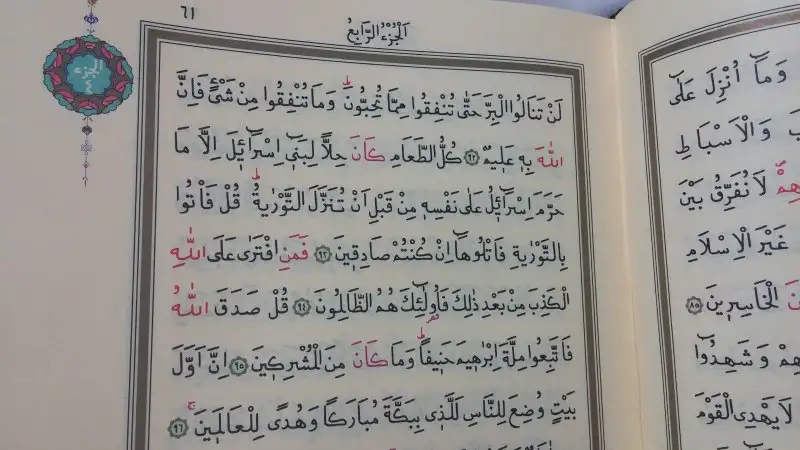 وَمَٓا اُنْزِلَ عَلٰٓى
وَالْاَسْبَاطِ
لَا نُفَرِّقُ بَيْنَ
غَيْرَ الْاِسْلَامِ
الْخَاسِرٖينَ ٨٥
وَشَهِدُٓوا
لَا يَهْدِى الْقَوْمَ
٦١
اَلْجُزْءُ الرَّابِعُ
الجزء
٤
لَنْ تَنَالُوا الْبِرَّ حَتّٰى تُنْفِقُوا مِمَّا تُحِبُّونَ وَمَا تُنْفِقُوا مِنْ شَىْءٍ فَاِنَّ
اللّٰهَ بِهٖ عَلٖيمٌ ٩٢ كُلُّ الطَّعَامِ كَانَ حِلًّا لِبَنٖٓى اِسْرَٓائٖلَ اِلَّا مَا
حَرَّمَ اِسْرَٓائٖلُ عَلٰى نَفْسِهٖ مِنْ قَبْلِ اَنْ تُنَزَّلَ التَّوْرٰيةُ قُلْ فَاْتُوا
بِالتَّوْرٰيةِ فَاتْلُوهَٓا اِنْ كُنْتُمْ صَادِقٖينَ ٩٣ فَمَنِ افْتَرٰى عَلَى اللّٰهِ
الْكَذِبَ مِنْ بَعْدِ ذٰلِكَ فَاُو۬لٰٓئِكَ هُمُ الظَّالِمُونَ ٩٤ قُلْ صَدَقَ اللّٰهُ
فَاتَّبِعُوا مِلَّةَ اِبْرٰهٖيمَ حَنٖيفًا وَمَا كَانَ مِنَ الْمُشْرِكٖينَ ٩٥ اِنَّ اَوَّلَ
بَيْتٍ وُضِعَ لِلنَّاسِ لَلَّذٖى بِبَكَّةَ مُبَارَكًا وَهُدًى لِلْعَالَمٖينَ ٩٦